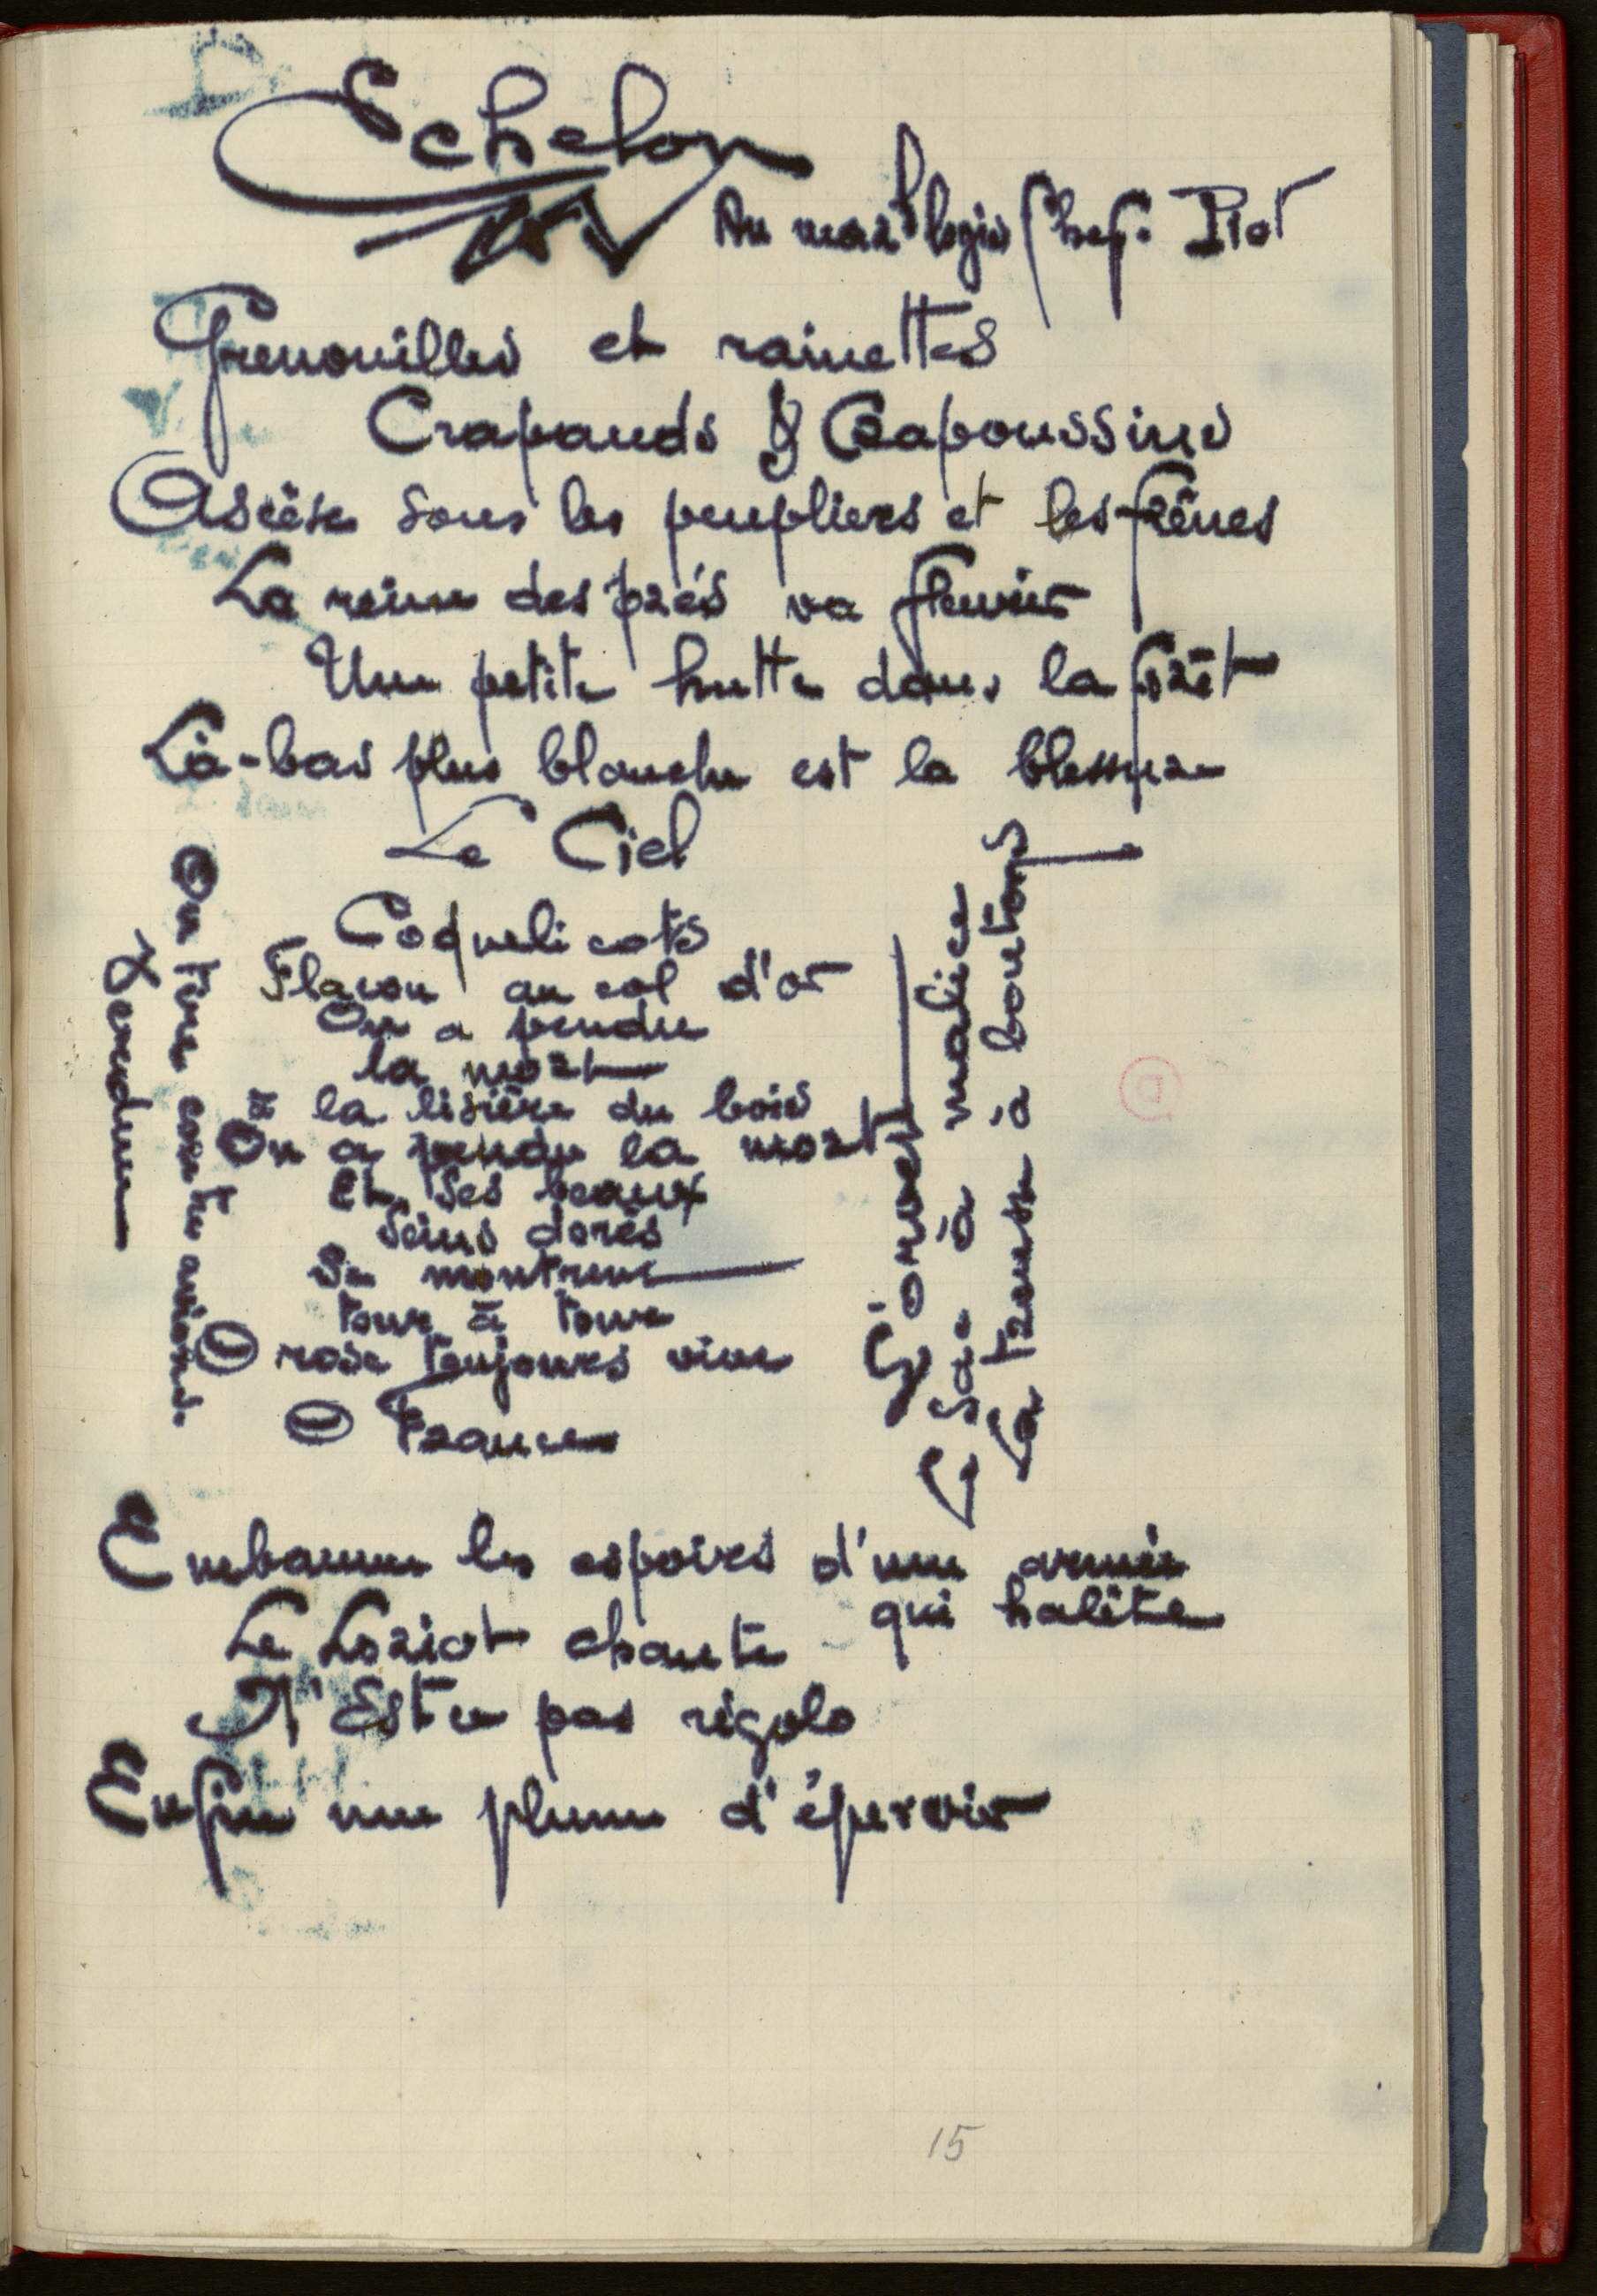 Echelon
Au mar^al logis Chef. Piot
Grenouilles et rainettes
Crapauds & Crapoussins
Ascèse sous les peupliers et les frênes
La reine des prés va fleurir
Une petite hutte dans la forêt
Là-bas plus blanche est la blessure
Le Ciel
Coquelicots
Flacon au col d'or
On a pendu
la mort
à la lisière du bois
On a pendu la mort
Et ses beaux
seins dorés
Se montrent
tour à tour
O rose toujours vive
O France
On tire contre avions.
Verdun
L'orvet
Le sac à malice
La trousse à boutons
Embaume les espoirs d'une armée
qui halète
Le Loriot chante
N'Est ce pas rigolo
Enfin une plume d'épervier
15